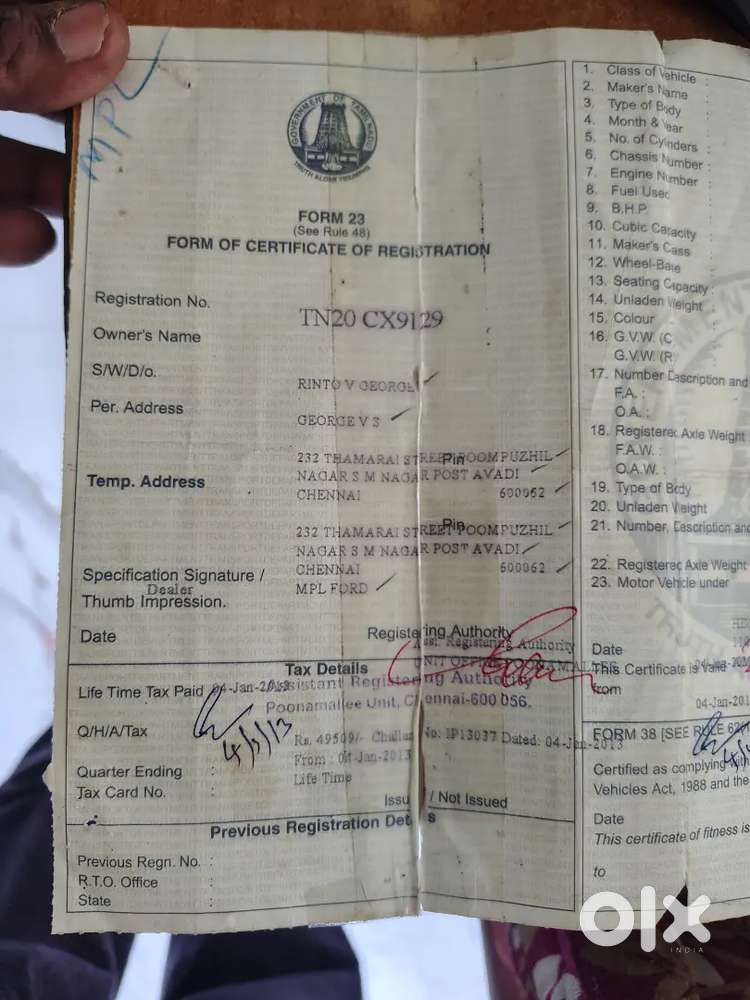 MPL
GOVERNMENT OF TAMIL NADU
TRUTH ALONE TRIUMPHS
FORM 23
(See Rule 48)
FORM OF CERTIFICATE OF REGISTRATION
Registration No.
TN20 CX9129
Owner's Name
S/W/D/o.
RINTO V GEORGE
Per. Address
GEORGE V S
232 THAMARAI STREET POOMPUZHIL
Pin
Temp. Address
NAGAR S M NAGAR POST AVADI
CHENNAI 600062
232 THAMARAI STREET POOMPUZHIL
Pin
NAGAR S M NAGAR POST AVADI
CHENNAI 600062
Specification Signature /
Dealer MPL FORD
Thumb Impression.
Date
Registering Authority
Asst. Registering Authority
UNIT OFFICE POONAMALLEE
Tax Details
Life Time Tax Paid 04-Jan-2013
Assistant Registering Authority
Poonamallee Unit, Chennai-600 056.
4/1/13
Q/H/A/Tax
Rs. 49509/- Challan No: IP13037 Dated: 04-Jan-2013
From : 04-Jan-2013
Quarter Ending :
Life Time
Tax Card No. :
Issued / Not Issued
Previous Registration Details
Previous Regn. No. :
R.T.O. Office :
State :
1. Class of Vehicle :
2. Maker's Name :
3. Type of Body
4. Month & Year
5. No. of Cylinders :
6. Chassis Number :
7. Engine Number :
8. Fuel Used
9. B.H.P.
10. Cubic Capacity
11. Maker's Cass
12. Wheel-Base
13. Seating Capacity :
14. Unladen Weight :
15. Colour
16. G.V.W. (C
G.V.W. (R
17. Number Description and
F.A. :
O.A. :
18. Registered Axle Weight
F.A.W. :
O.A.W. :
19. Type of Body
20. Unladen Weight
21. Number, Description and
22. Registered Axle Weight
23. Motor Vehicle under
Date
This Certificate is Valid
from
04-Jan-201
FORM 38 [SEE RULE 62
Certified as complying with
Vehicles Act, 1988 and the
Date
This certificate of fitness is
to
olx
INDIA